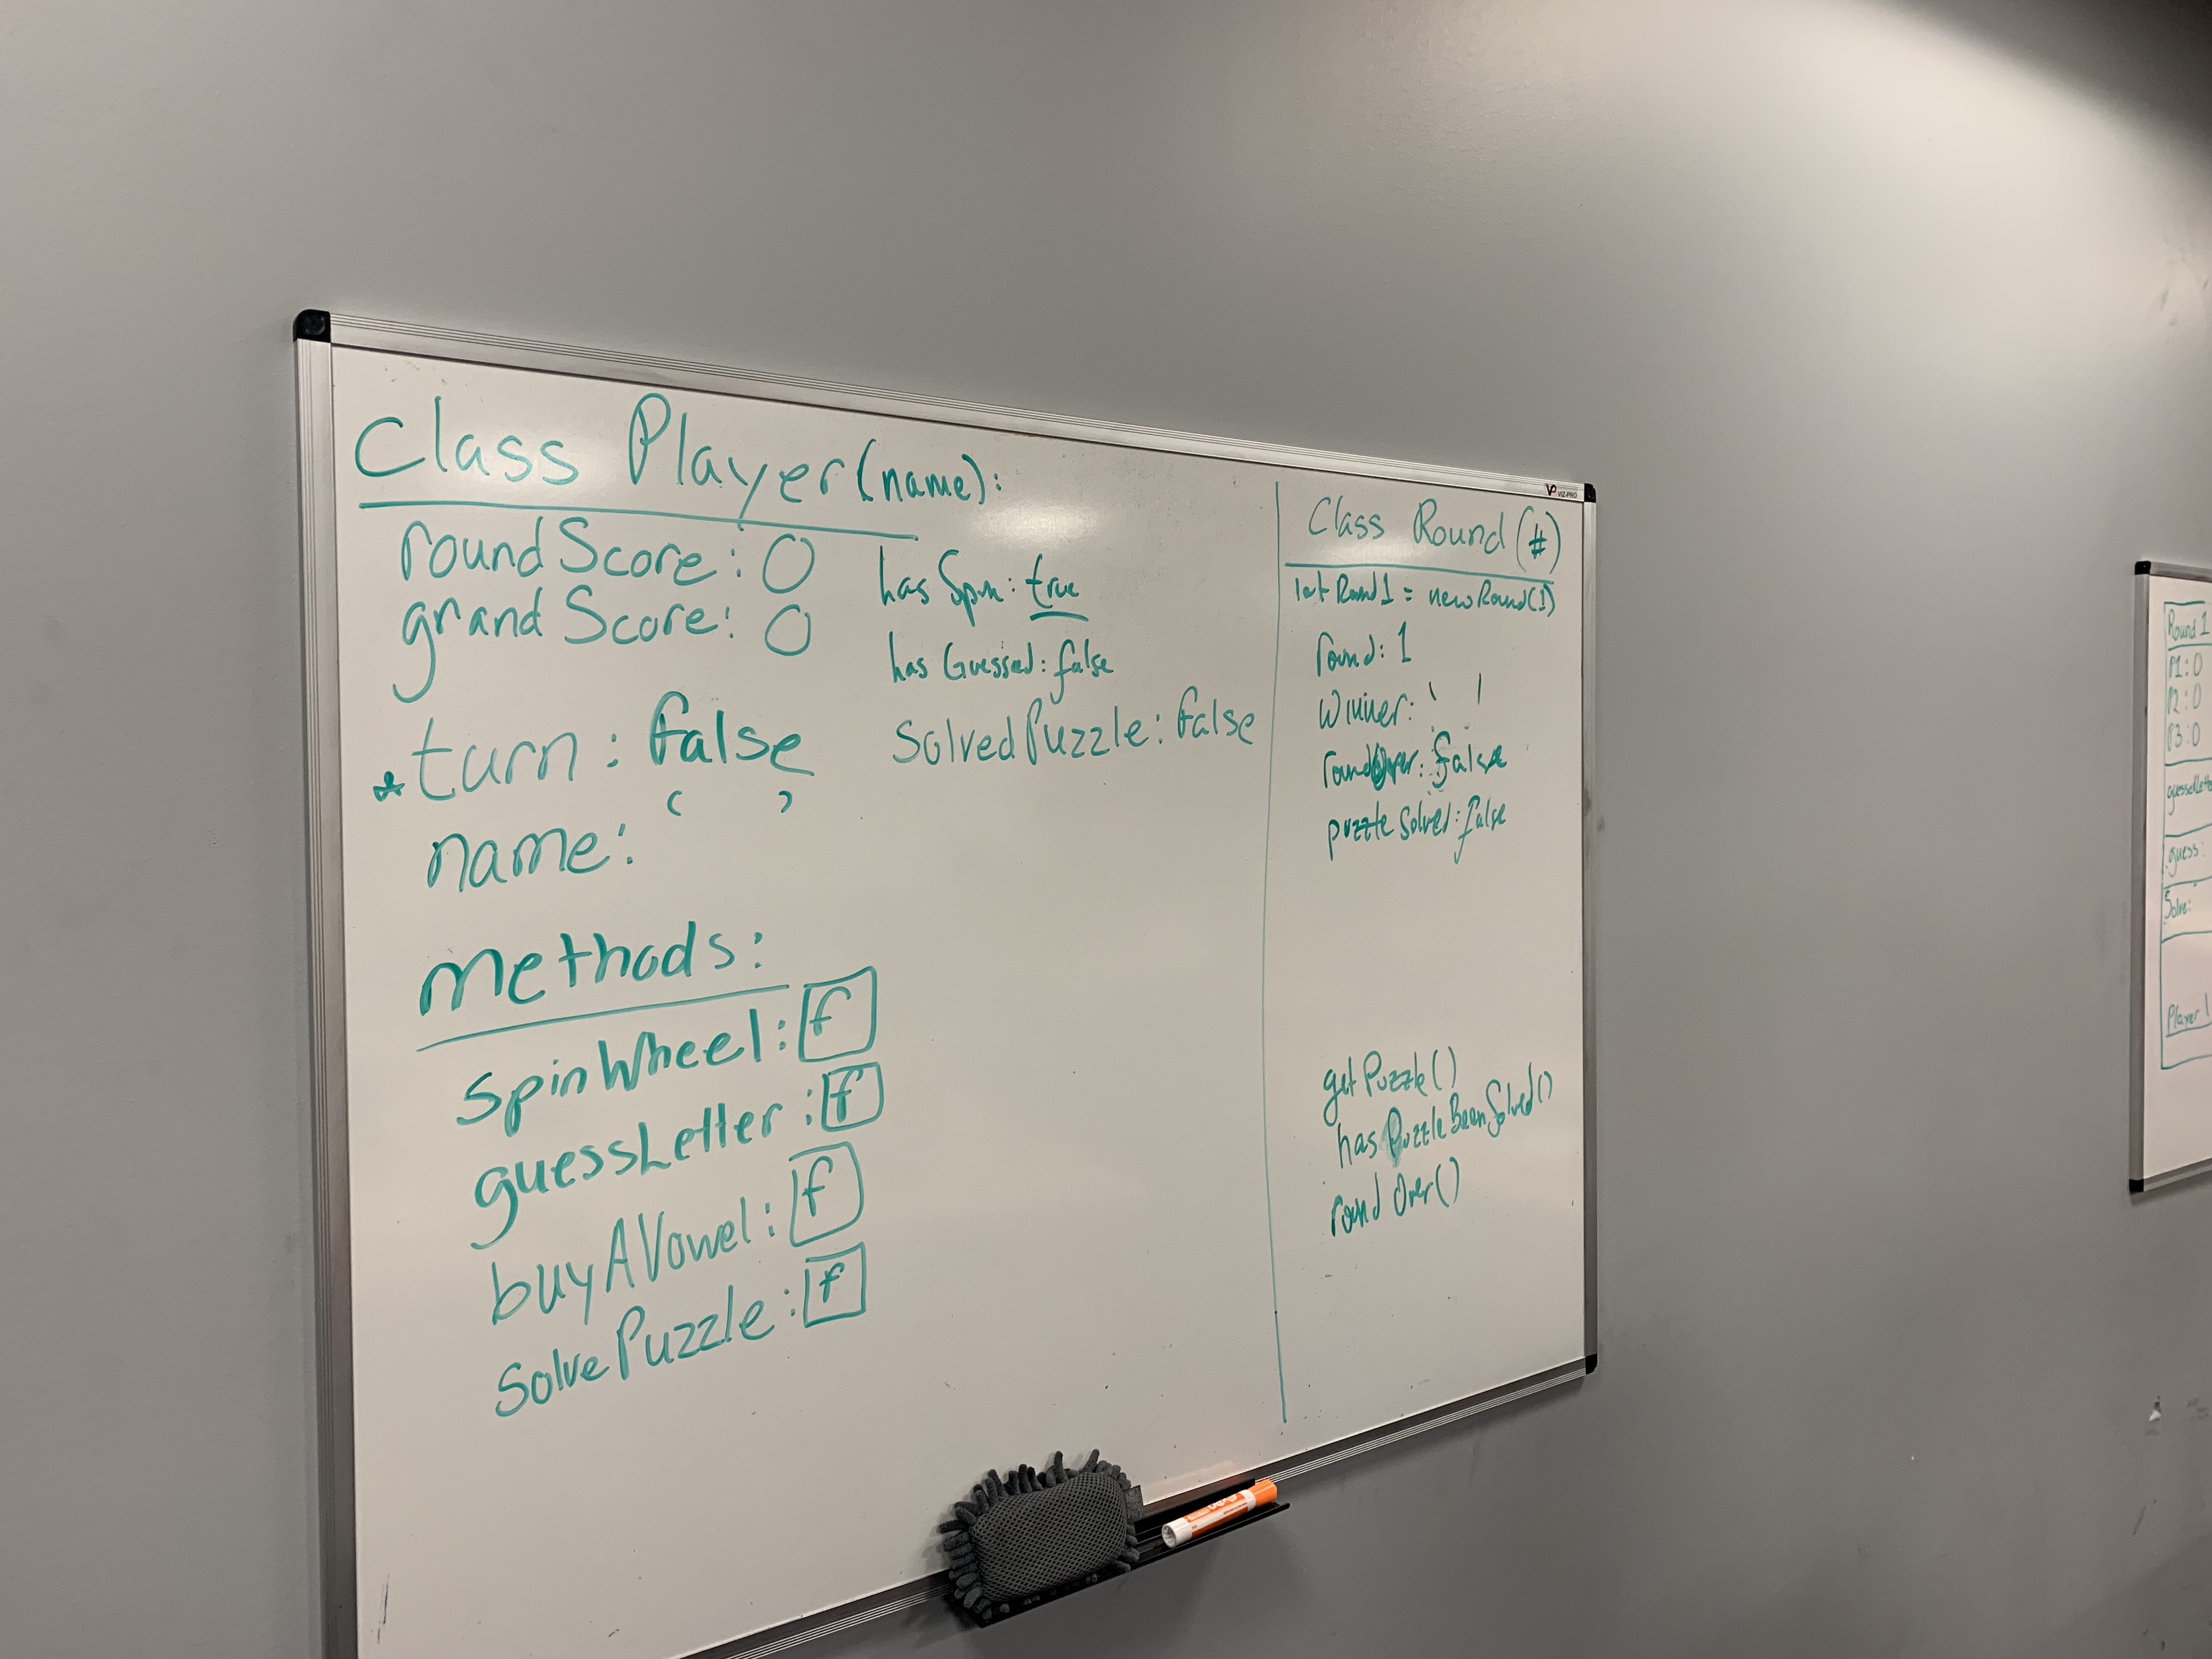 Class Player(name):
roundScore: 0
grandScore: 0
* turn: false
name: ' '
has Spun: true
has Guessed: false
solvedPuzzle: false
methods:
spinWheel: f
guessLetter: f
buyAVowel: f
solvePuzzle: f
VIZ-PRO
Class Round (#)
Round1 = new Round(1)
round: 1
winner: ' '
roundOver: false
puzzle Solved: false
getPuzzle()
has PuzzleBeenSolved()
round Over()
Round 1
P1: 0
P2: 0
P3: 0
guess:
Solve:
Player 1